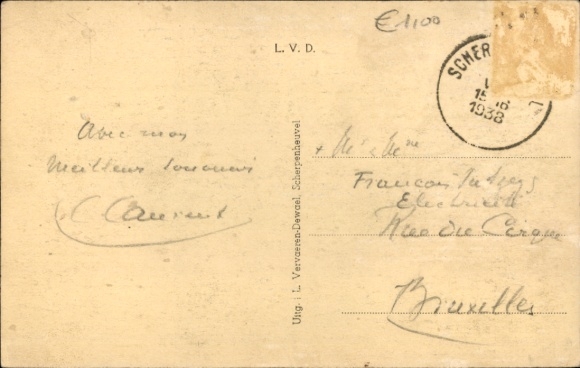 €1,00
L.V.D.
SCHER
15-16
1938
Avec mes
Meilleurs souvenirs
Uitg. : L. Vervaeren-Dewael, Scherpenheuvel
Mr & Mme
François
Electricité
Rue du Cirque
Bruxelles